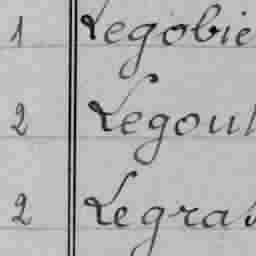 1 Legobie
2 Legoul
2 Legras